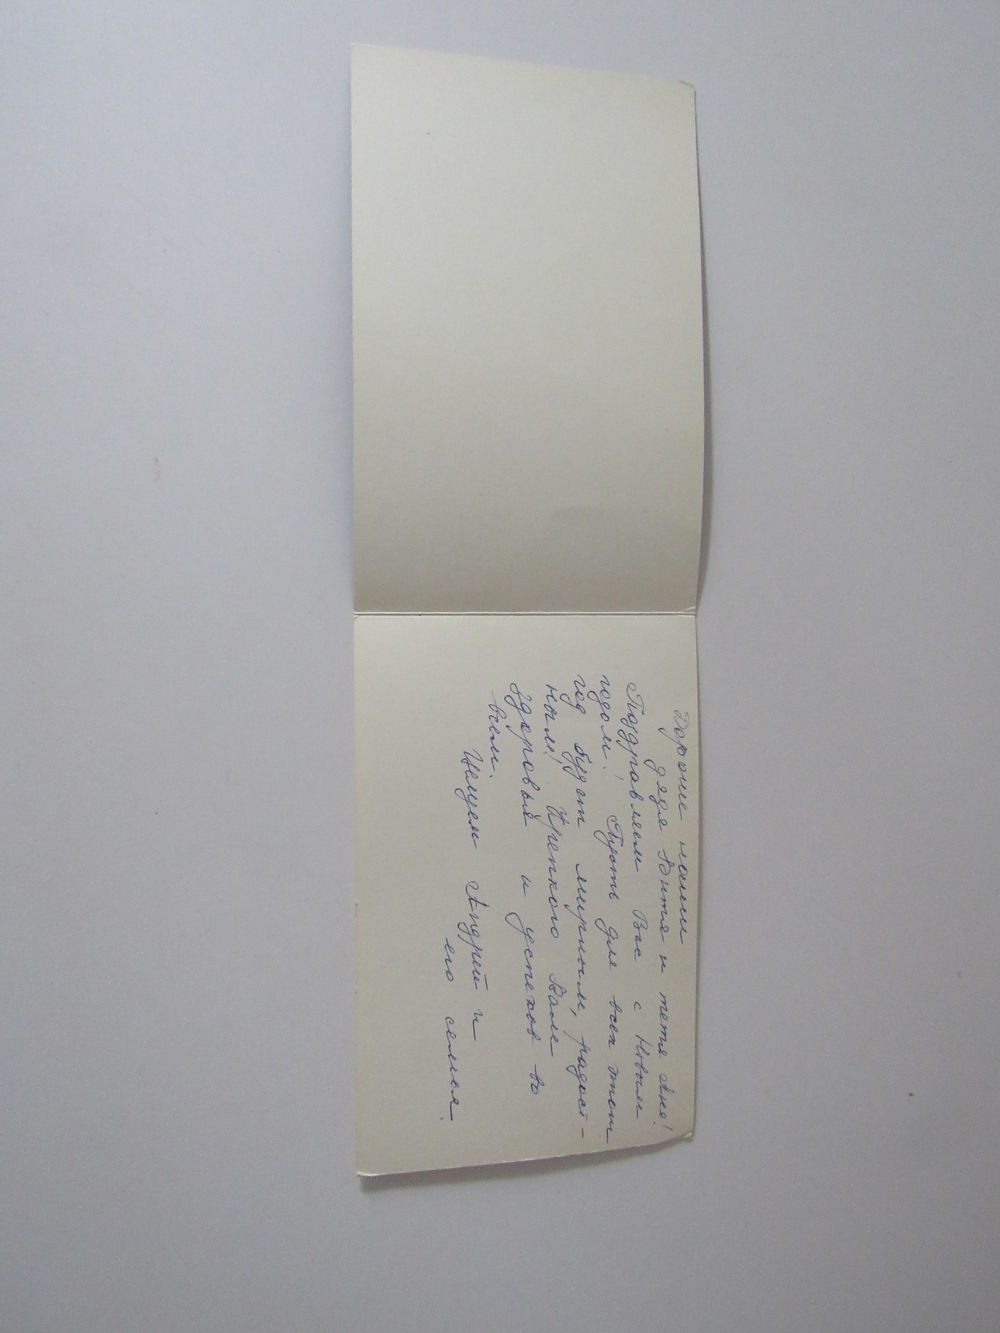 Дорогие наши
дядя Витя и тетя Аня!
Поздравляем Вас с Новым
годом! Пусть для всех этот
год будет мирным, радост-
ным! Крепкого Вам
здоровья и успехов во
всем.
Целуем Андрей и
его семья.